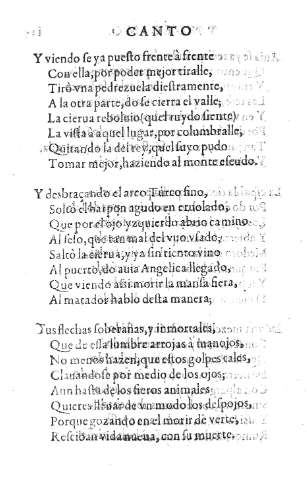 CANTO
Y viendo se ya puesto frente à frente
Con ella, por poder mejor tiralle,
Tirò vna pedrezuela diestramente,
A la otra parte, do se cierra el valle;
La cierua reboluio (quel ruydo siente)
La vista à aquel lugar, por columbralle;
Quitando la del rey, quel suyo pudo
Tomar mejor, haziendo al monte escudo.
Y desbraçando el arco Turco fino,
Soltò el harpon agudo en eruolado;
Que por el ojo yzquierdo abrio camino
Al seso, que tan mal del vuo vsado;
Saltò la cierua, y ya sin tiento vino
Al puerto, do auia Angelica llegado,
Que viendo assi morir la mansa fiera,
Al matador hablò desta manera;
Tus flechas soberanas, y inmortales,
Que de essa lumbre arrojas à manojos,
No menos hazen, que estos golpes tales,
Clauandose por medio de los ojos;
Aun hasta de los fieros animales
Quieres lleuar de vn modo los despojos,
Porque gozando en el morir de verte,
Resciban vida nueua, con su muerte.